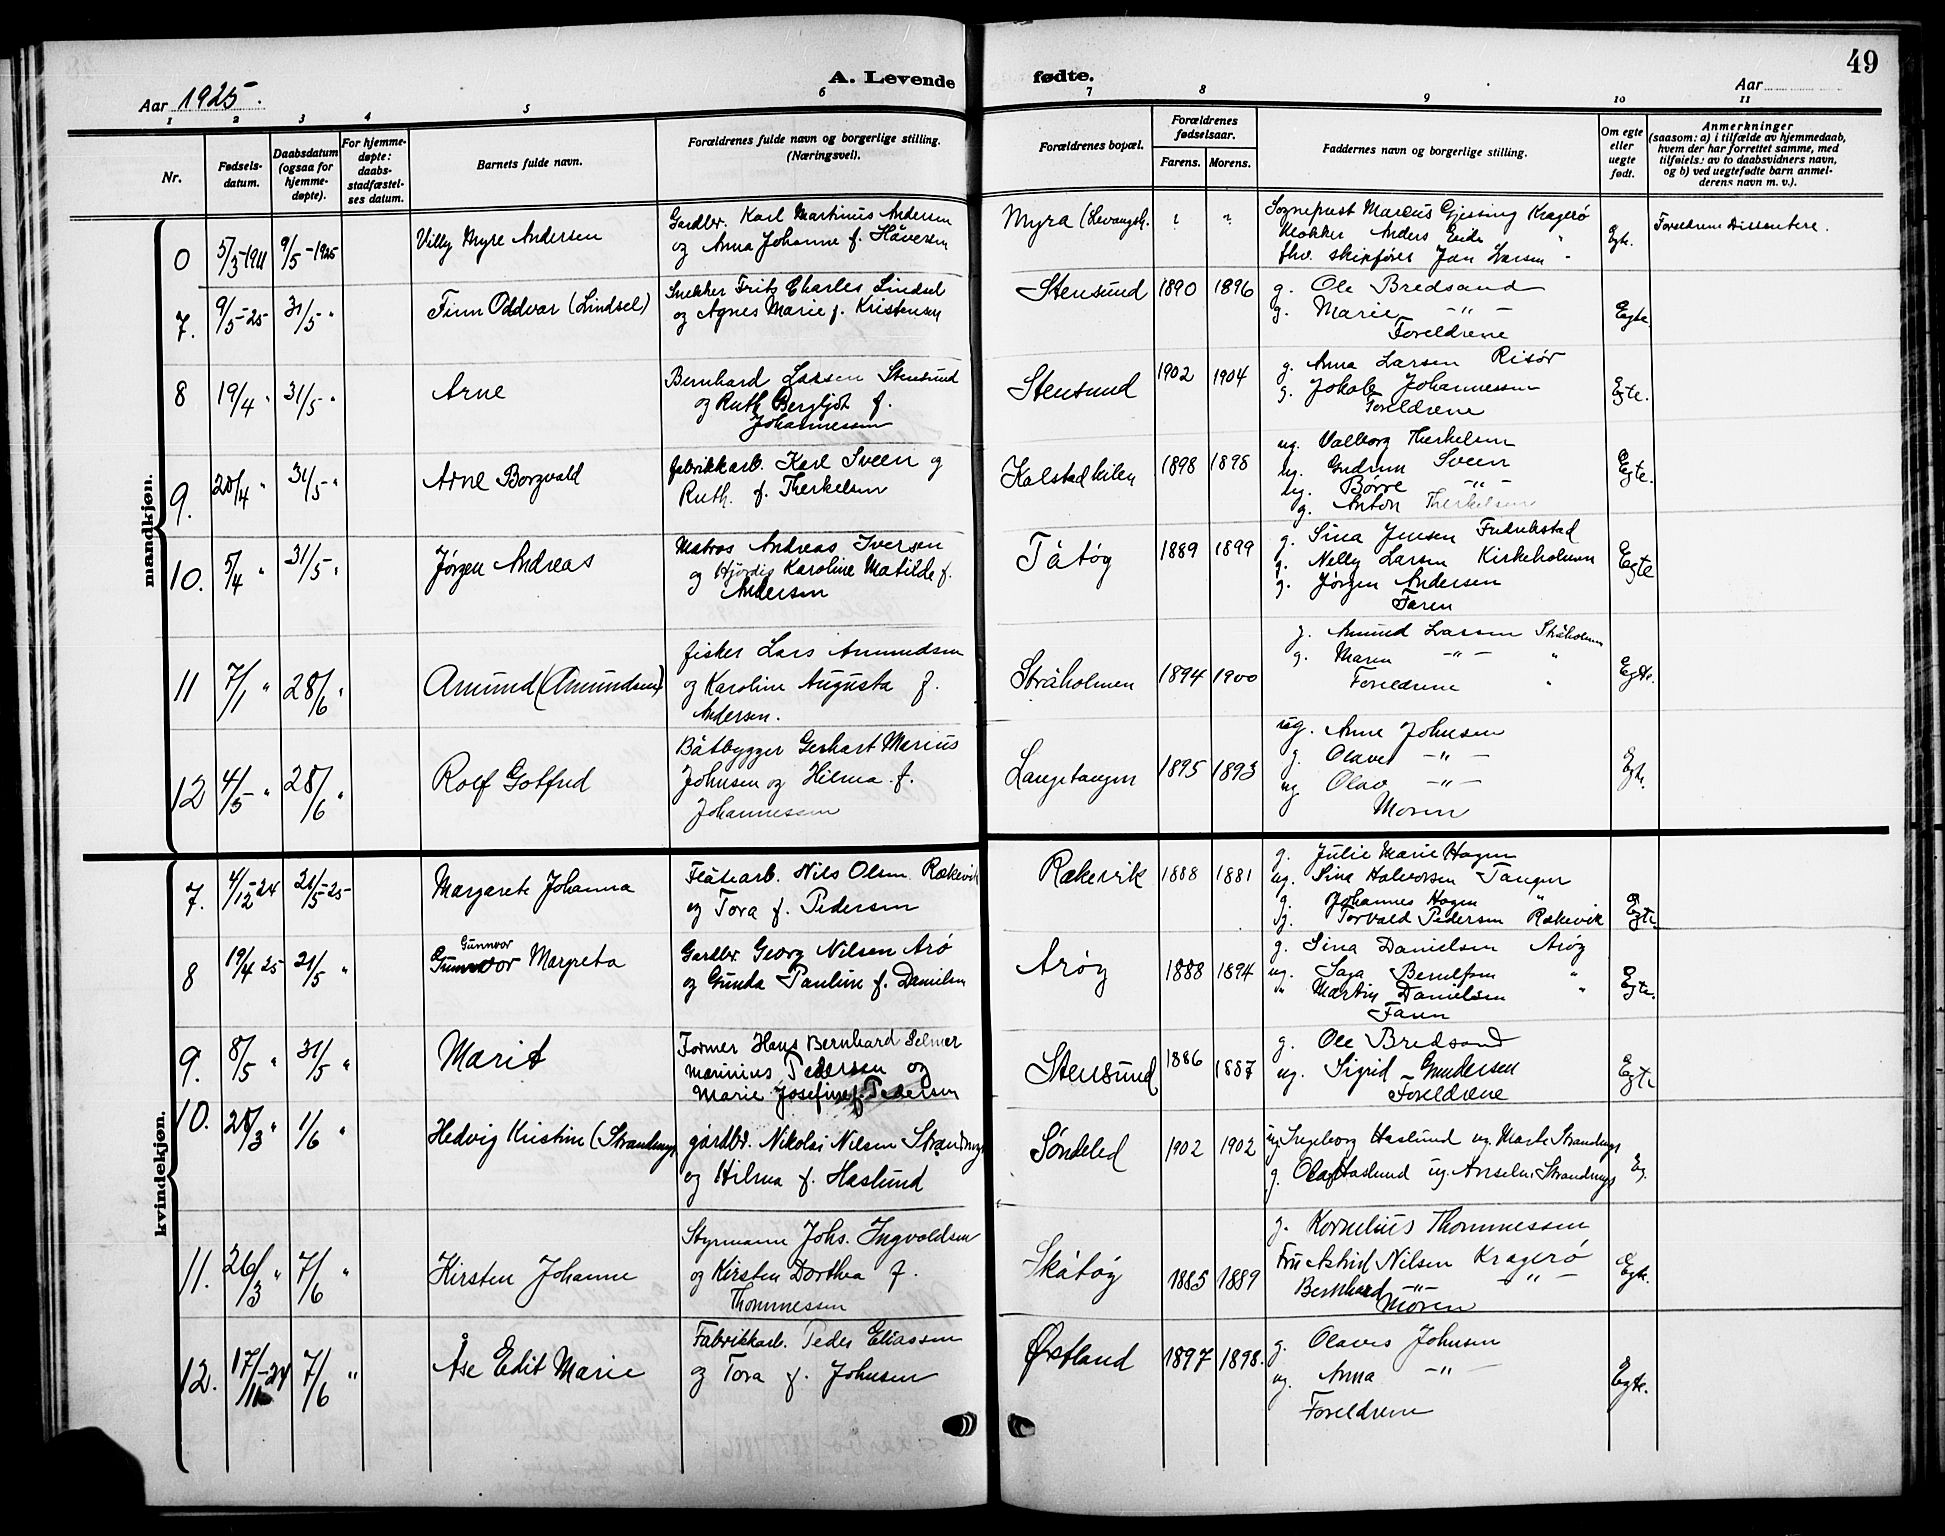 49
A. Levende fødte.
Aar 1925.
Aar
1 2 3 4 5 6 7 8 9 10 11
Nr.
Fødsels-
datum.
Daabsdatum
(ogsaa for
hjemme-
døpte).
For hjemme-
døpte:
daabs-
stadfæstel-
ses datum.
Barnets fulde navn.
Forældrenes fulde navn og borgerlige stilling.
(Næringsvei).
Forældrenes bopæl.
Forældrenes
fødselsaar.
Farens. Morens.
Faddernes navn og borgerlige stilling.
Om egte
eller
uegte
født.
Anmerkninger
(saasom: a) i tilfælde av hjemmedaab,
hvem der har forrettet samme, med
tilføiels: av to daabsvidners navn,
og b) ved uegtefødte barn anmel-
derens navn m. v.).
mandkjøn.
0 5/3-1911 9/5-1925 Villy Myre Andersen
Gardbr. Karl Martinus Andersen
og Anna Johanne f. Håversen
Myra (Levangsh. ? ?
Sogneprest Marcus Gjessing Kragerø
Klokker Anders Eide "
fhv. skipsfører Jan Larsen "
Egte. Foreldrene Dissentere.
7. 9/5-25 31/5 " Finn Oddvar (Lindsel)
Snekker Fritz Charles Lindsel
og Agnes Marie f. Kristensen
Stensund 1890 1896
g. Ole Bredsand
g. Marie - " -
Foreldrene
Egte.
8 19/4 " 31/5 " Arne
Bernhard Larsen Stensund
og Ruth Bergljot f.
Johannessen
Stensund 1902 1904
g. Anna Larsen Risør
g. Jakob Johannessen
Foreldrene
Egte.
9. 20/4 " 31/5 " Arne Borgvald
fabrikkarb. Karl Sveen og
Ruth f. Therkelsen
Kalstadkilen 1898 1898
ug. Valborg Therkelsen
ug. Gudrun Sveen
ug. Børre - " -
g. Anton Therkelsen
Egte.
10. 5/4 " 31/5 " Jørgen Andreas
Matros Andreas Iversen
og Hjørdis Karoline Matilde f.
Andersen
Tåtøy 1889 1899
g. Sina Jensen Fredrikstad
g. Nelly Larsen Kirkeholmen
g. Jørgen Andersen
Faren
Egte
11 7/1 " 28/6 " Amund (Amundsen)
fisker Lars Amundsen
og Karoline Augusta f.
Andersen.
Stråholmen 1894 1900
g. Amund Larsen Stråholmen
g. Maren - " - "
Foreldrene "
Egte.
12 4/5 " 28/6 " Rolf Gotfred
Båtbygger Gerhart Marius
Johnsen og Hilma f.
Johannessen
Langetangen 1895 1893
ug. Anne Johnsen
g. Olaves - " -
ug Olav - " -
Moren
Egte.
kvindekjøn.
7. 4/12-24 21/5-25 Margarete Johanna
Flåtearb. Nils Olsen Rækevik
og Tora f. Pedersen
Rækevik 1888 1881
g. Julie Marie Hagen
ug. Sina Halvorsen Tangen
g. Johannes Hagen "
g. Torvald Pedersen Rækevik
Egte
8 19/4 25 21/5 " Gunnvor Margreta
Gunnvor
Gardbr. Georg Nilsen Arø
og Gunda Pauline f. Danielsen
Arøy 1888 1894
g. Sina Danielsen Arøy
ug. Saga Berulfsen "
" Martin Danielsen "
Faren
Egte.
9. 8/5 " 31/5 " Marit
Former Hans Bernhard Selmer
Marinius Pedersen og
Marie Josefine f. Pedersen
Stensund 1886 1887
g. Ole Bredsand
ug. Sigrid Gundersen
Foreldrene
Egte
10. 28/3 " 1/6 " Hedvig Kristine (Strandnes)
gårdbr. Nikolai Nilsen Strandnes
og Hilma f. Haslund
Søndeled 1902 1902
ug Ingeborg Haslund ug. Marte Strandnes
g. Olaf Haslund ug. Anselm Strandnes
Eg.
11. 26/3 " 7/6 " Kirsten Johanne
Styrmann Johs. Ingvoldsen
og Kirsten Dorthea f.
Thommessen
Skåtøy 1885 1889
g. Kornelius Thommessen
Fru Astrid Nilsen Kragerø
Bernhard - " - - " -
Moren
Egte.
12. 17/11-24 7/6 " Åse Edit Marie
Fabrikkarb. Peder Eliassen
og Tora f. Johnsen
Østland 1897 1898.
g. Olaves Johnsen
ug. Anna - " -
Foreldrene
Egte.